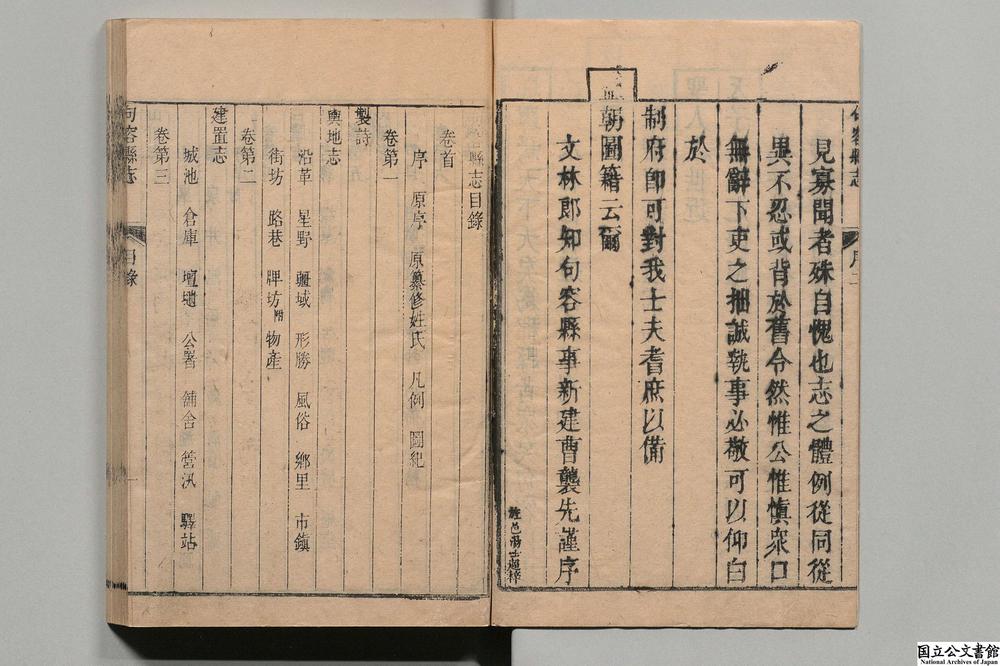 句容縣志
序
見寡聞者殊自愧也志之體例從同從
異不忍或背於舊令然惟公惟慎衆口
無辭下吏之抽誠執事必敬可以仰白
於
制府即可對我士夫耆庶以備
朝圖籍云爾
文林郎知句容縣事新建曹襲先謹序
句容縣志目錄
卷首
序 原序 原纂修姓氏 凡例 圖紀
卷第一
製詩
輿地志
沿革 星野 疆域 形勝 風俗 鄉里 市鎮
街坊 路巷 牌坊附 物產
卷第二
建置志
城池 倉庫 壇壝 公署 舖舍 營汛 驛站
卷第三
句容縣志
目錄
一
国立公文書館
National Archives of Japan